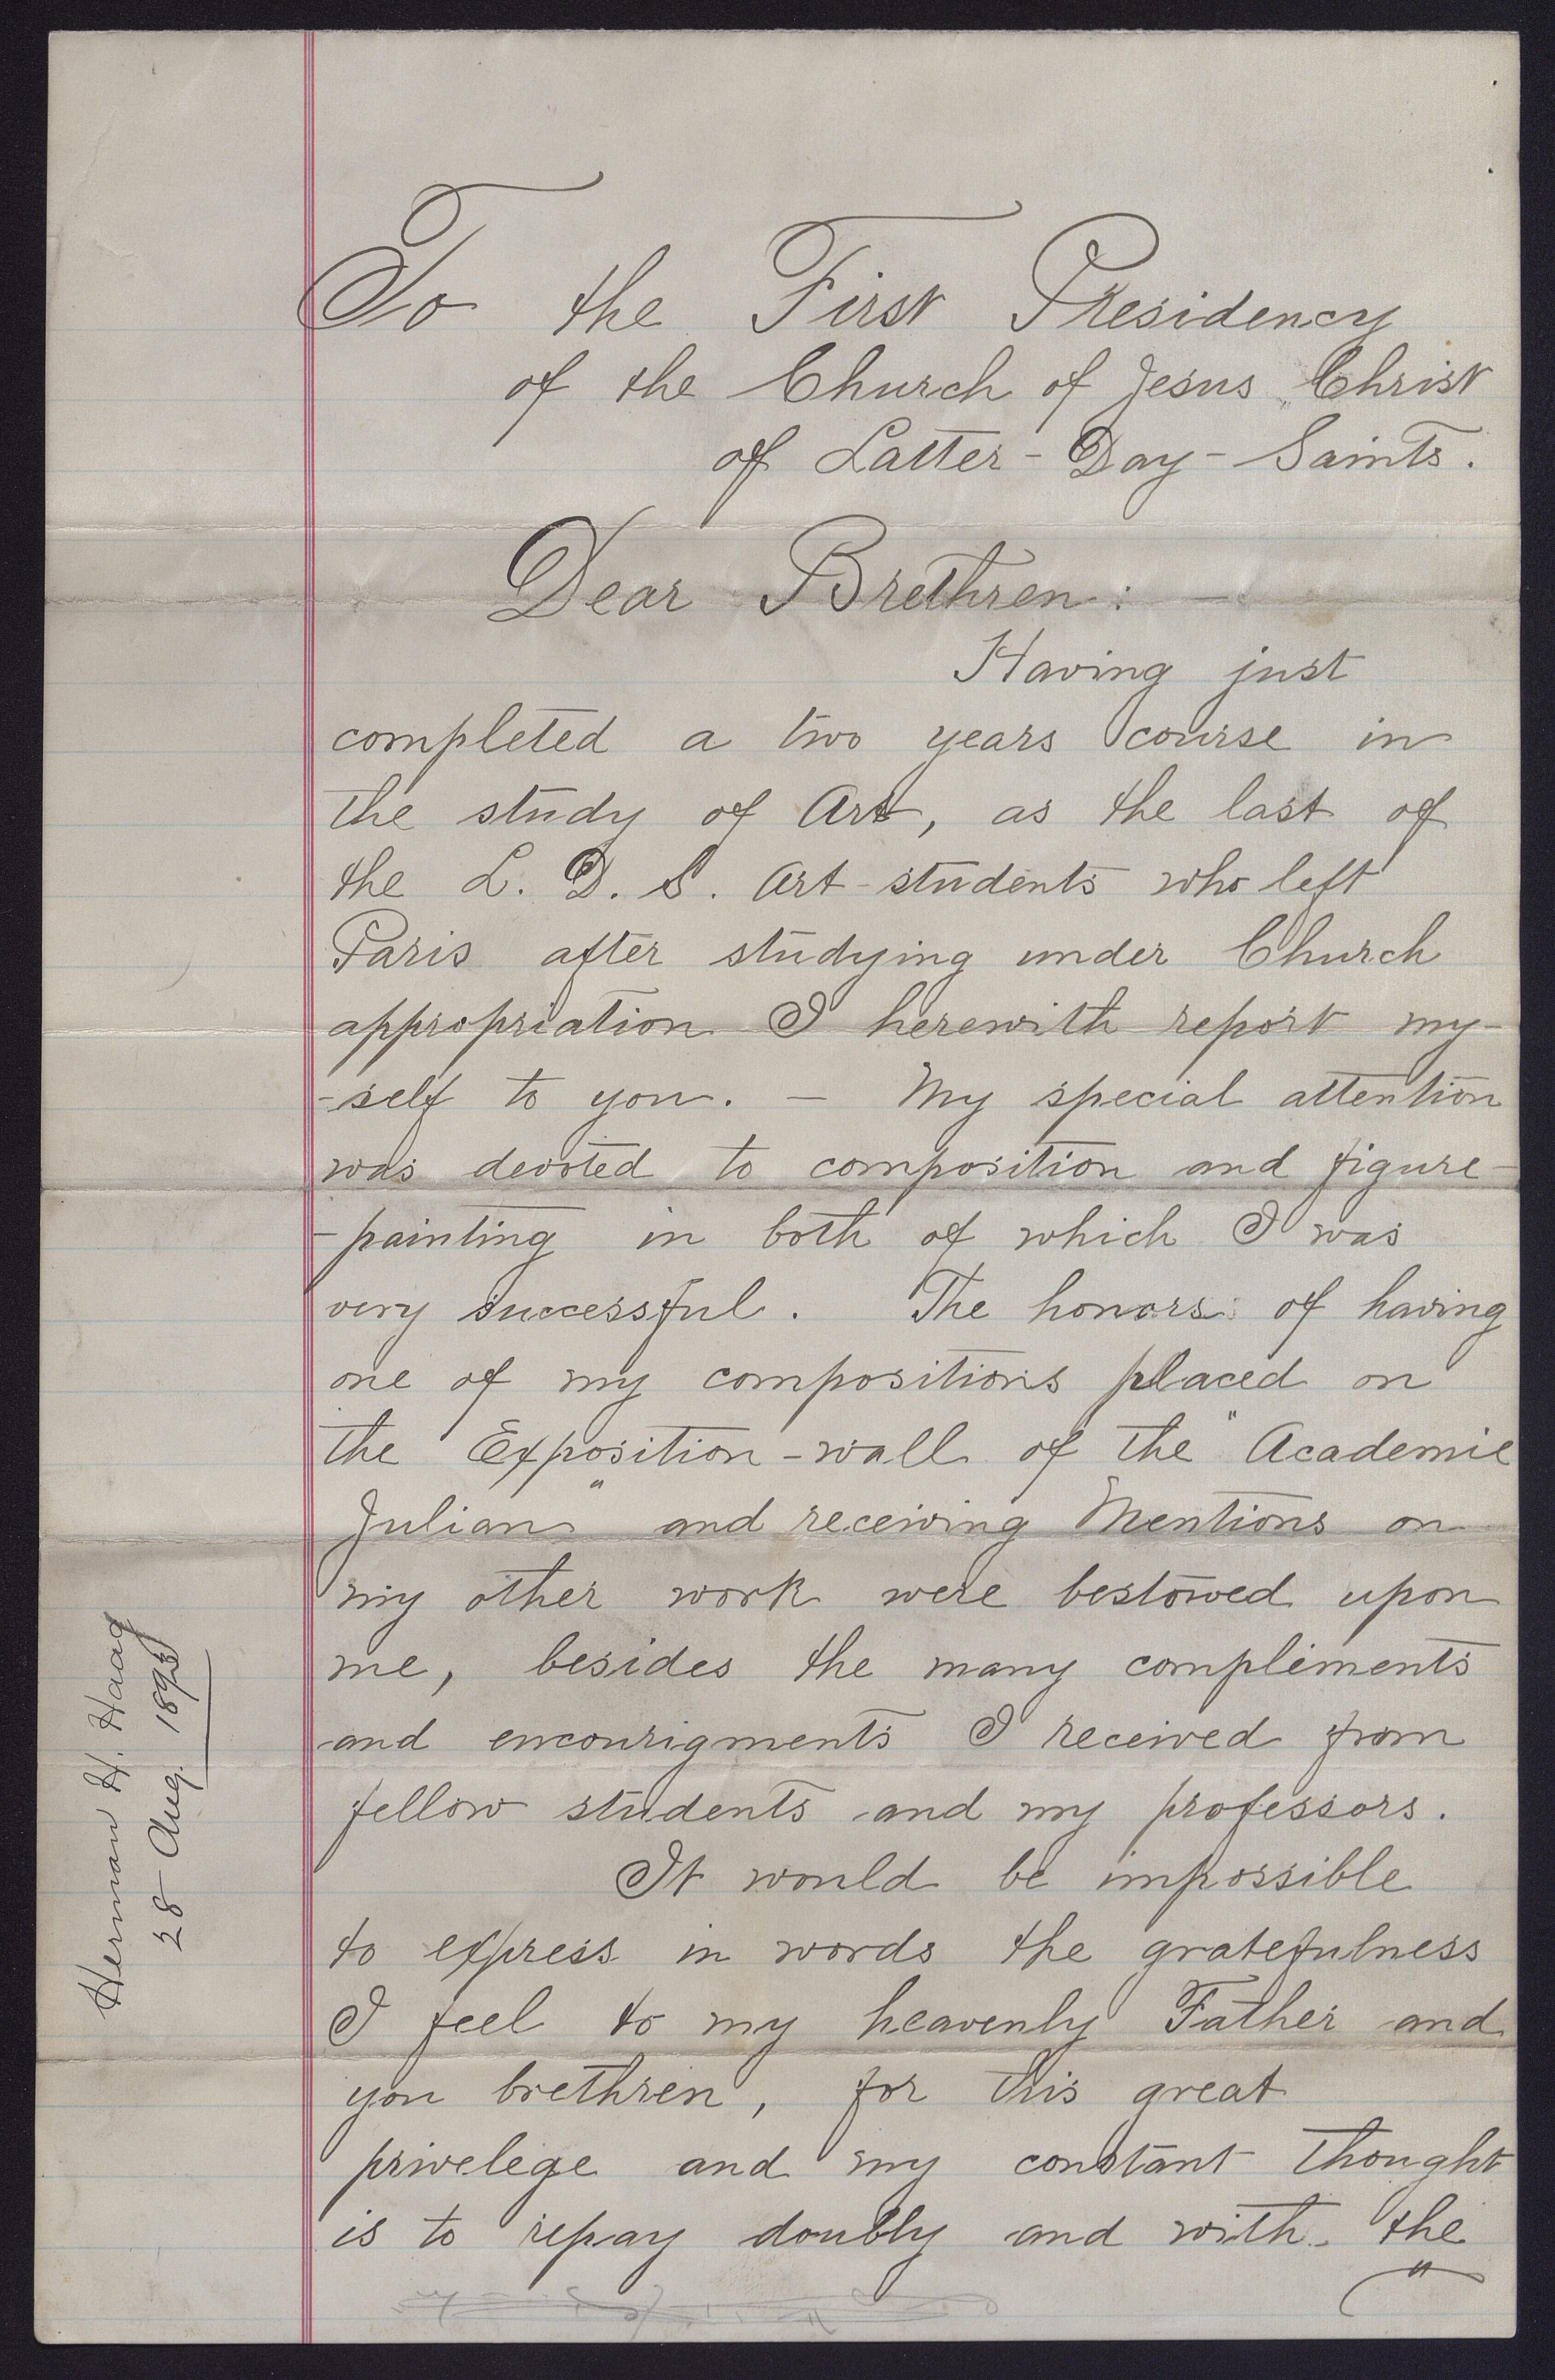 To the First Presidency
of the Church of Jesus Christ
of Latter-Day-Saints.
Dear Brethren: —
Having just
completed a two years course in
the study of Art, as the last of
the L. D. S. Art-students who left
Paris after studying under Church
appropriation I herewith report my-
-self to you. — My special attention
was devoted to composition and figure-
-painting in both of which I was
very successful. The honors of having
one of my compositions placed on
the Exposition-wall of the "Academie
Julian" and receiving Mentions on
my other work were bestowed upon
me, besides the many compliments
and encourigments I received from
fellow students and my professors.
It would be impossible
to express in words the gratefulness
I feel to my heavenly Father and
you brethren, for this great
privelege and my constant thought
is to repay doubly and with the
Herman H. Haag
28 Aug. 1893